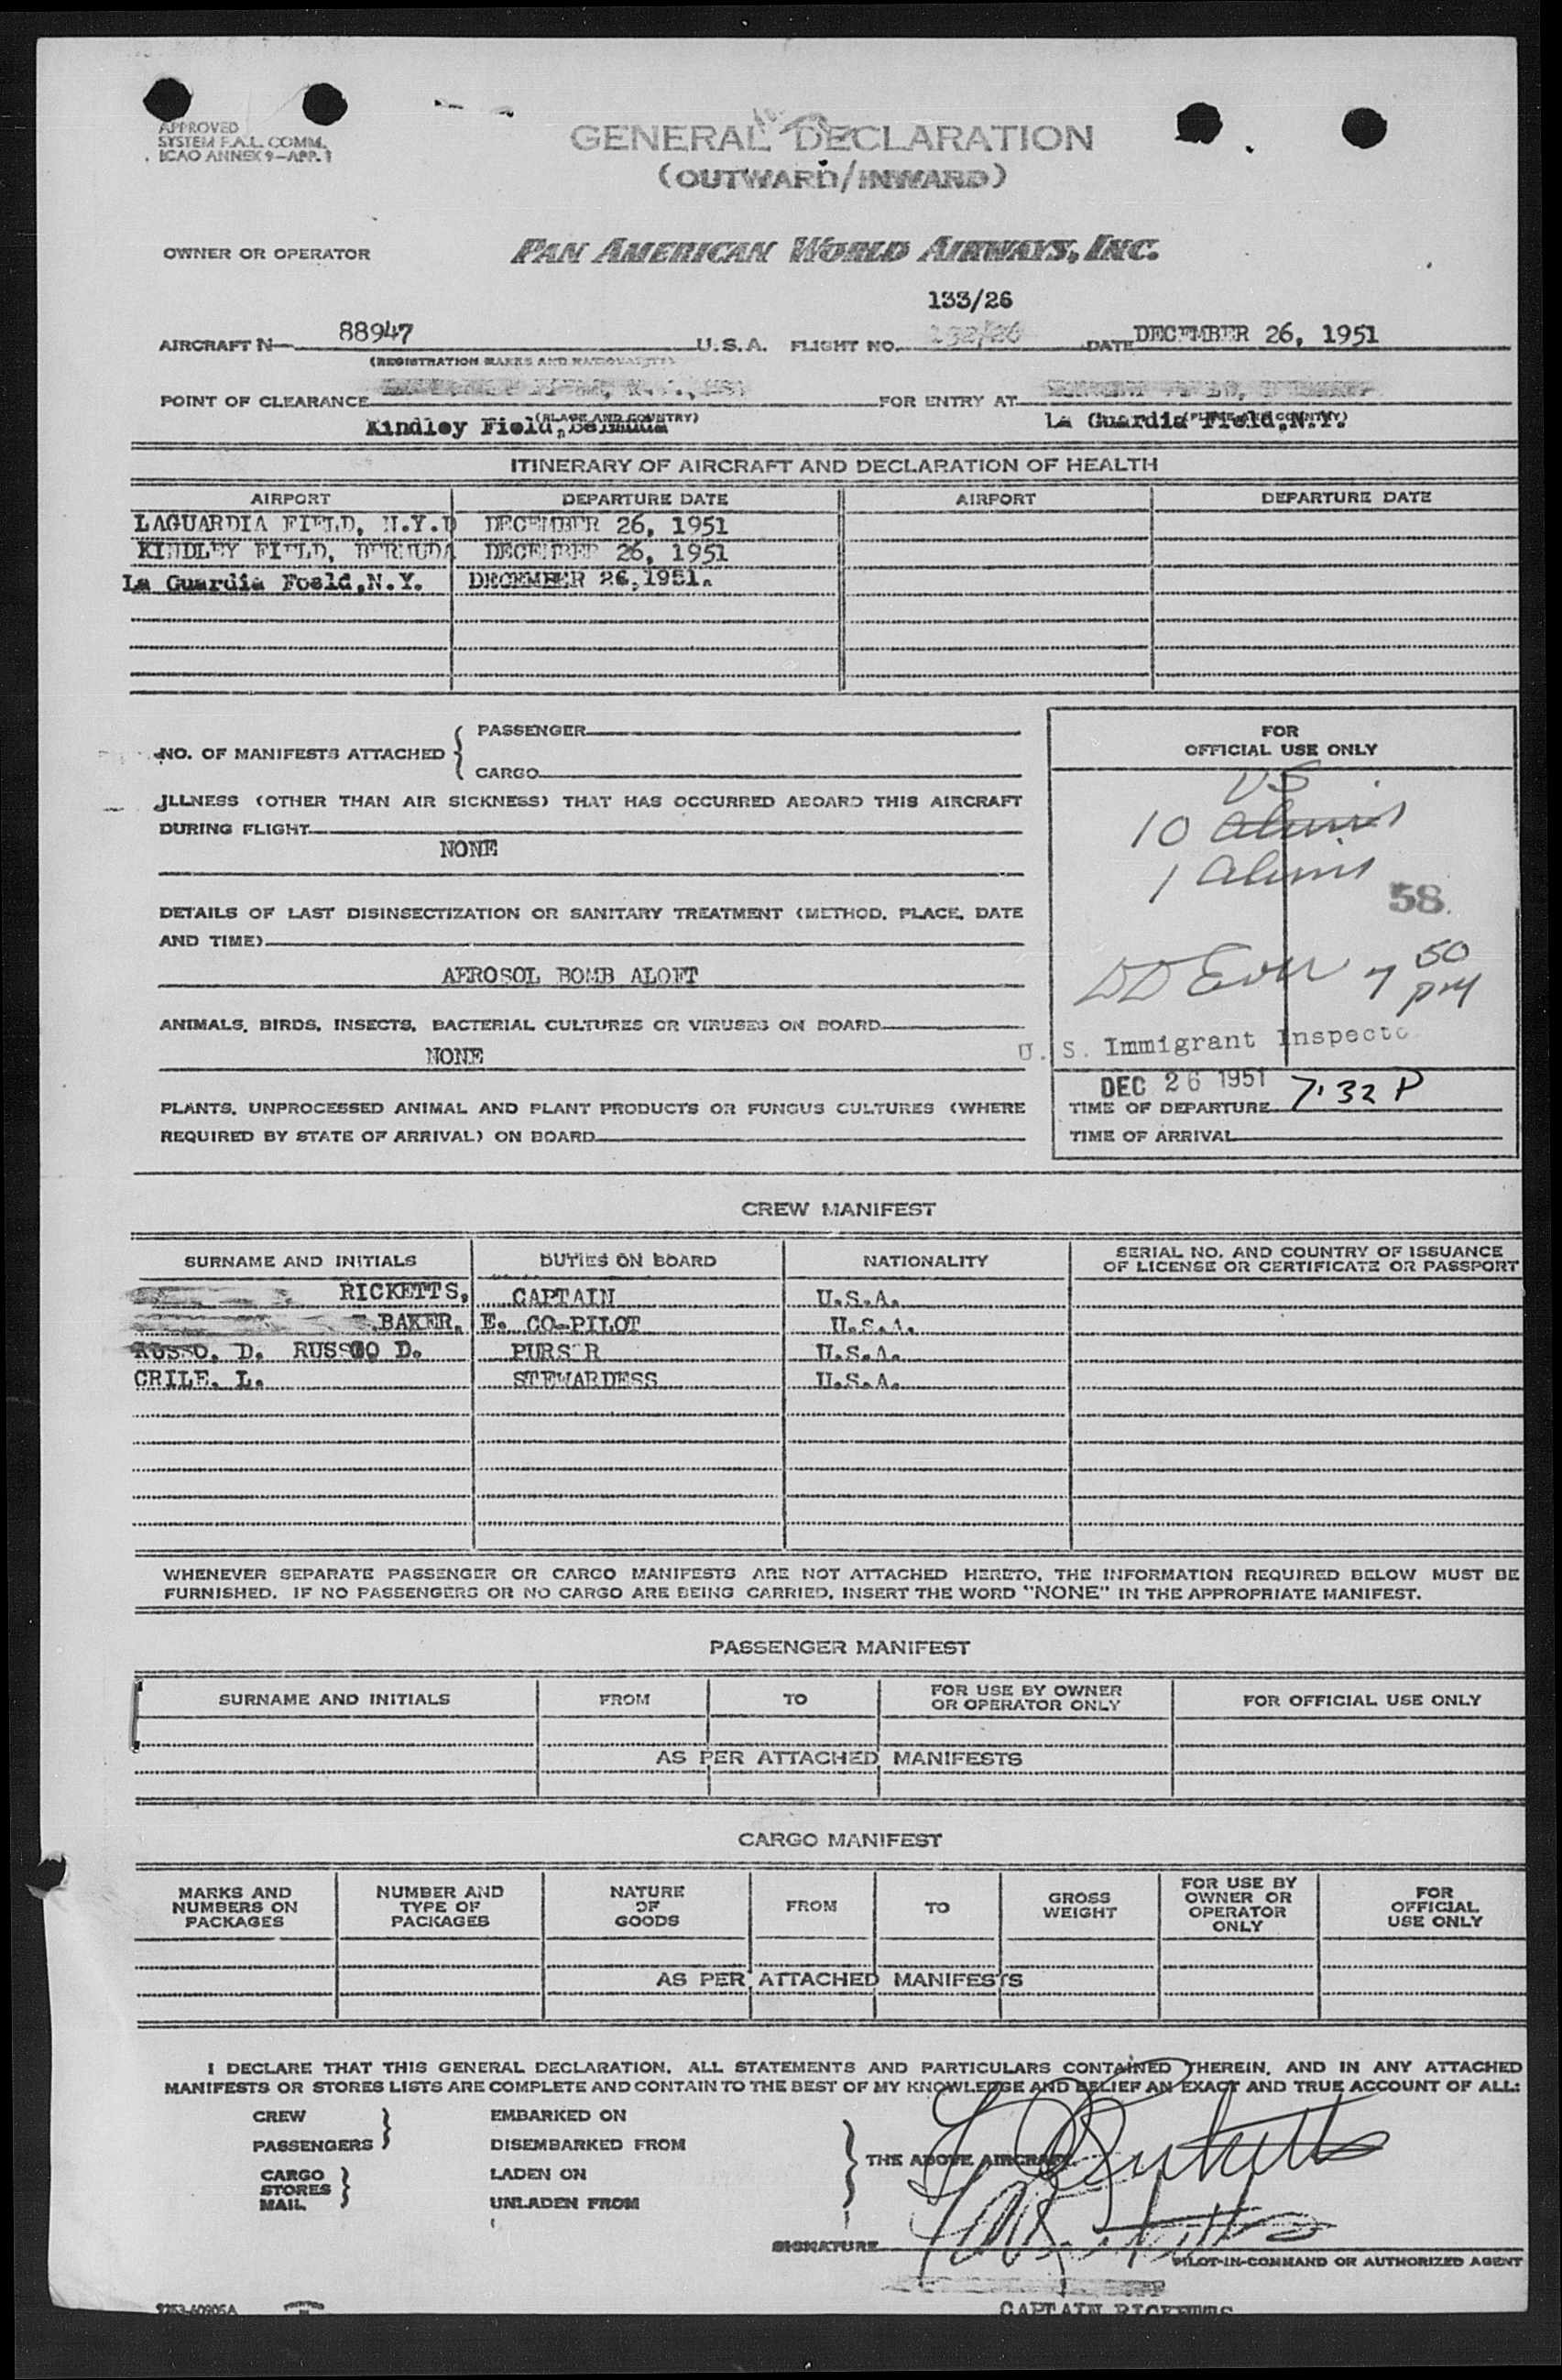 APPROVED
SYSTEM F.A.L. COMM.
ICAO ANNEX 9-APP. 1
GENERAL DECLARATION
(OUTWARD/INWARD)
OWNER OR OPERATOR PAN AMERICAN WORLD AIRWAYS, INC.
133/26
AIRCRAFT N 88947 U.S.A. FLIGHT NO. 132/26 DATE DECEMBER 26, 1951
(REGISTRATION MARKS AND NATIONALITY)
POINT OF CLEARANCE FOR ENTRY AT
(PLACE AND COUNTRY) (PLACE AND COUNTRY)
Kindley Field, Bermuda La Guardia Field,N.Y.
ITINERARY OF AIRCRAFT AND DECLARATION OF HEALTH
AIRPORT DEPARTURE DATE AIRPORT DEPARTURE DATE
LAGUARDIA FIELD, N.Y. DECEMBER 26, 1951
KINDLEY FIELD, BERMUDA DECEMBER 26, 1951
La Guardia Foeld,N.Y. DECEMBER 26,1951.
NO. OF MANIFESTS ATTACHED { PASSENGER
CARGO
ILLNESS (OTHER THAN AIR SICKNESS) THAT HAS OCCURRED ABOARD THIS AIRCRAFT
DURING FLIGHT
NONE
DETAILS OF LAST DISINSECTIZATION OR SANITARY TREATMENT (METHOD, PLACE, DATE
AND TIME)
AEROSOL BOMB ALOFT
ANIMALS, BIRDS, INSECTS, BACTERIAL CULTURES OR VIRUSES ON BOARD
NONE
PLANTS, UNPROCESSED ANIMAL AND PLANT PRODUCTS OR FUNGUS CULTURES (WHERE
REQUIRED BY STATE OF ARRIVAL) ON BOARD
FOR
OFFICIAL USE ONLY
US
10 Aliens
1 Aliens
58
7 50 pm
U. S. Immigrant Inspecto
DEC 26 1951 7:32 P
TIME OF DEPARTURE
TIME OF ARRIVAL
CREW MANIFEST
SURNAME AND INITIALS DUTIES ON BOARD NATIONALITY SERIAL NO. AND COUNTRY OF ISSUANCE
OF LICENSE OR CERTIFICATE OR PASSPORT
RICKETTS, CAPTAIN U.S.A.
BAKER, E. CO-PILOT U.S.A.
RUSSO, D. RUSSOO D. PURSER U.S.A.
CRILE, L. STEWARDESS U.S.A.
WHENEVER SEPARATE PASSENGER OR CARGO MANIFESTS ARE NOT ATTACHED HERETO, THE INFORMATION REQUIRED BELOW MUST BE
FURNISHED. IF NO PASSENGERS OR NO CARGO ARE BEING CARRIED, INSERT THE WORD "NONE" IN THE APPROPRIATE MANIFEST.
PASSENGER MANIFEST
SURNAME AND INITIALS FROM TO FOR USE BY OWNER
OR OPERATOR ONLY FOR OFFICIAL USE ONLY
AS PER ATTACHED MANIFESTS
CARGO MANIFEST
MARKS AND
NUMBERS ON
PACKAGES NUMBER AND
TYPE OF
PACKAGES NATURE
OF
GOODS FROM TO GROSS
WEIGHT FOR USE BY
OWNER OR
OPERATOR
ONLY FOR
OFFICIAL
USE ONLY
AS PER ATTACHED MANIFESTS
I DECLARE THAT THIS GENERAL DECLARATION, ALL STATEMENTS AND PARTICULARS CONTAINED THEREIN, AND IN ANY ATTACHED
MANIFESTS OR STORES LISTS ARE COMPLETE AND CONTAIN TO THE BEST OF MY KNOWLEDGE AND BELIEF AN EXACT AND TRUE ACCOUNT OF ALL:
CREW EMBARKED ON
PASSENGERS DISEMBARKED FROM
THE ABOVE AIRCRAFT.
CARGO LADEN ON
STORES
MAIL UNLADEN FROM
SIGNATURE
PILOT-IN-COMMAND OR AUTHORIZED AGENT
CAPTAIN RICKETTS